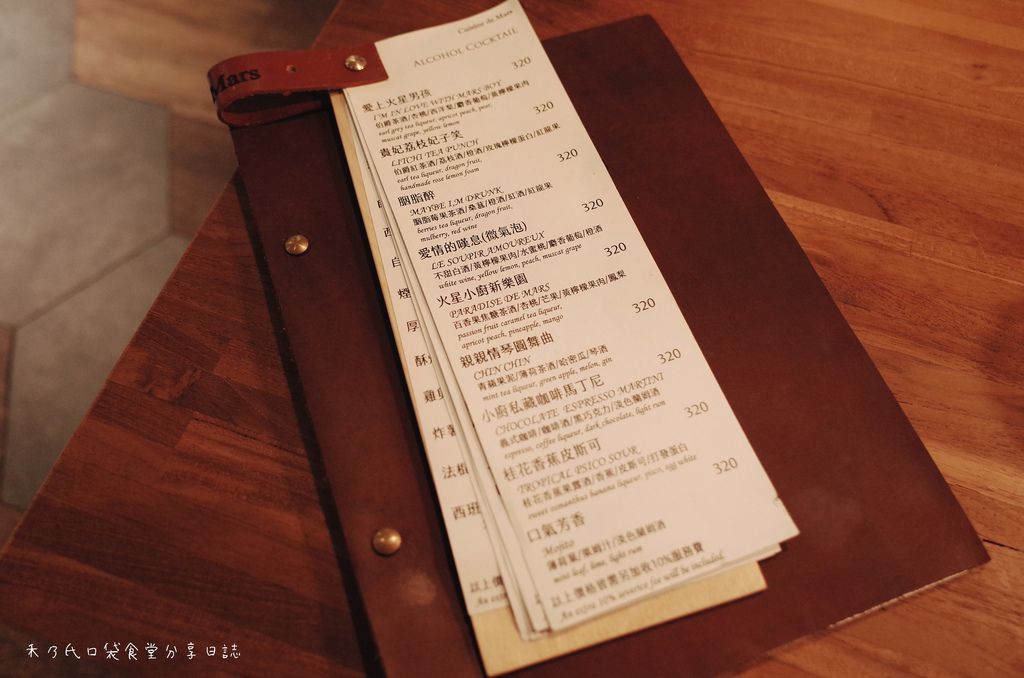 Mars
Cuisine de Mars
ALCOHOL COCKTAIL
愛上火星男孩 320
I'M IN LOVE WITH MARS BOY
伯爵茶酒/杏桃/西洋梨/麝香葡萄/黃檸檬果肉
earl grey tea liqueur, apricot peach, pear,
muscat grape, yellow lemon
貴妃荔枝妃子笑 320
LITCHI TEA PUNCH
伯爵紅茶酒/荔枝酒/橙酒/玫瑰檸檬蛋白/紅龍果
earl tea liqueur, dragon fruit,
handmade rose lemon foam
胭脂醉 320
MAYBE I,M DRUNK
胭脂莓果茶酒/桑葚/橙酒/紅酒/紅龍果
berries tea liqueur, dragon fruit,
mulberry, red wine
愛情的嘆息(微氣泡) 320
LE SOUPIR AMOUREUX
不甜白酒/黃檸檬果肉/水蜜桃/麝香葡萄/橙酒
white wine, yellow lemon, peach, muscat grape
火星小廚新樂園 320
PARADISE DE MARS
百香果焦糖茶酒/杏桃/芒果/黃檸檬果肉/鳳梨
passion fruit caramel tea liqueur,
apricot peach, pineapple, mango
親親情琴圓舞曲 320
CHIN CHIN
青蘋果泥/薄荷茶酒/哈密瓜/琴酒
mint tea liqueur, green apple, melon, gin
小廚私藏咖啡馬丁尼 320
CHOCOLATE ESPRESSO MARTINI
義式咖啡/咖啡酒/黑巧克力/淡色蘭姆酒
espresso, coffee liqueur, dark chocolate, light rum
桂花香蕉皮斯可 320
TROPICAL PSICO SOUR
桂花香蕉果露酒/香蕉/皮斯可/打發蛋白
sweet osmanthus banana liqueur, pisco, egg white
口氣芳香 320
Mojito
薄荷葉/萊姆汁/淡色蘭姆酒
mint leaf, lime, light rum
以上價格皆需另加收10%服務費
An extra 10% severice fee will be included.
西
自
煙
厚
酥
雞
炸薯
法植
西班
以上價
An extra
禾乃氏口袋食堂分享日誌